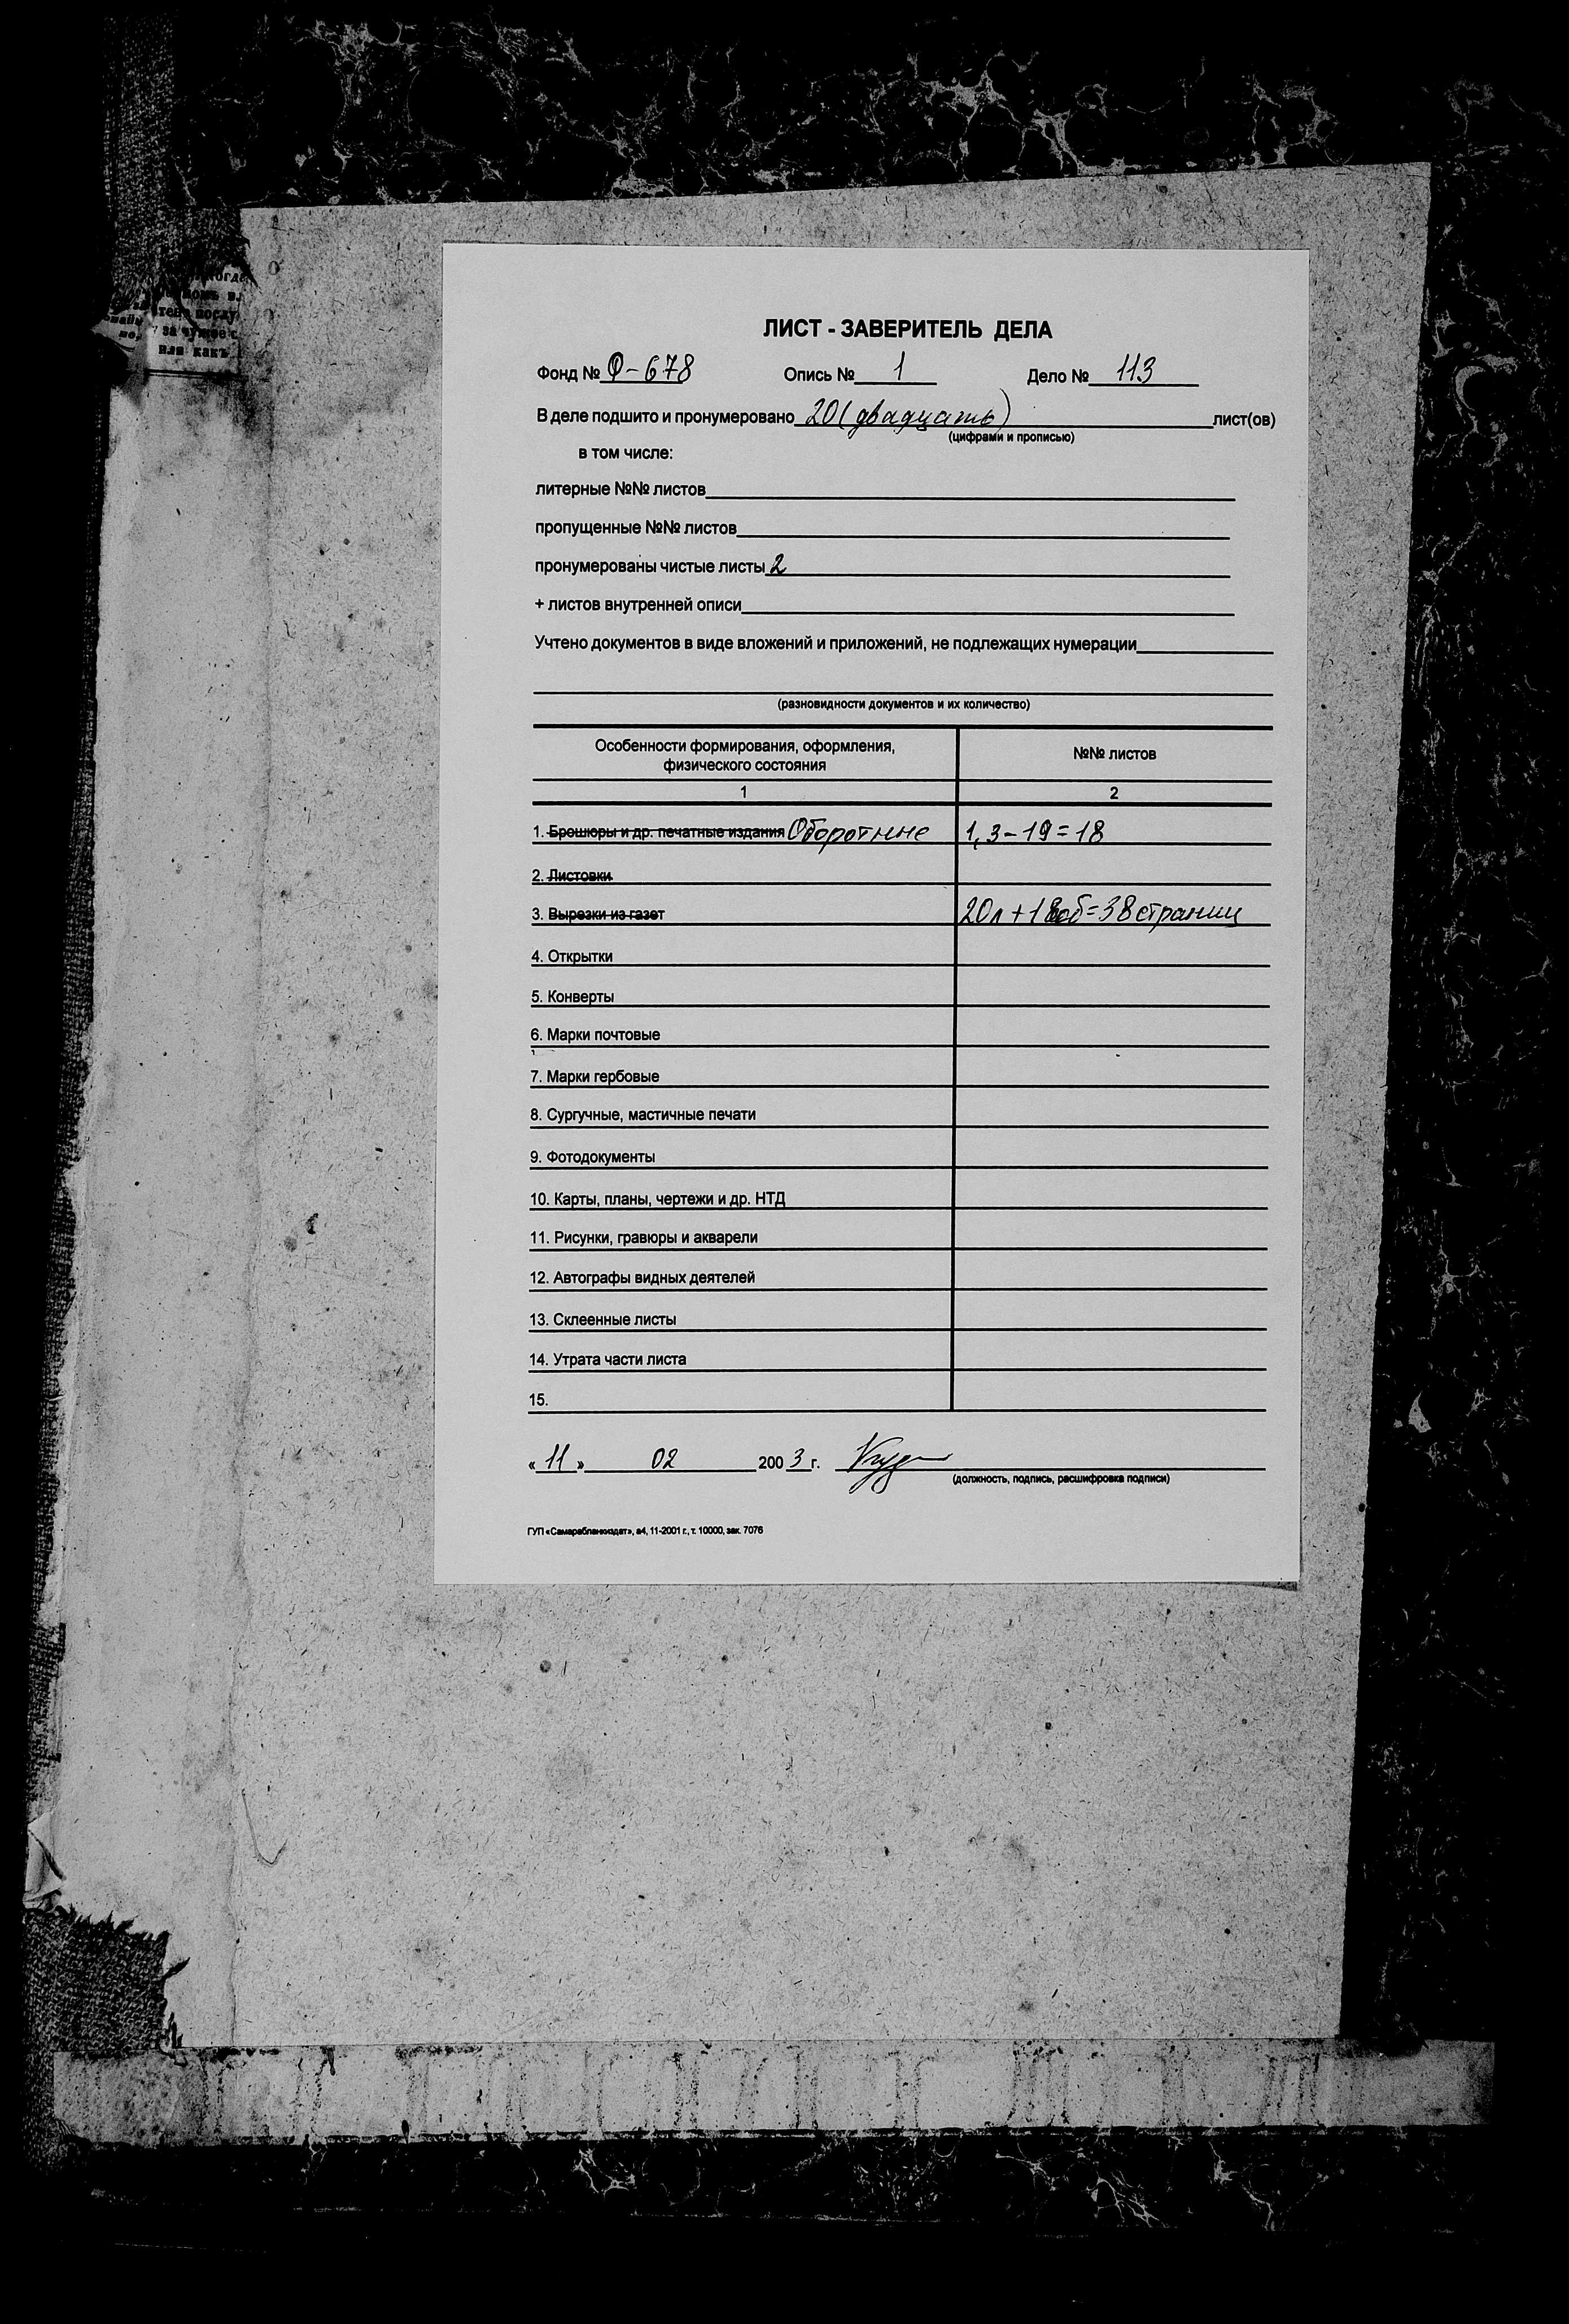 огда
послу
за чужое с
или какъ
ЛИСТ - ЗАВЕРИТЕЛЬ ДЕЛА
Фонд № Ф-678 Опись № 1 Дело № 113
В деле подшито и пронумеровано 20 (двадцать) лист(ов)
(цифрами и прописью)
в том числе:
литерные №№ листов
пропущенные №№ листов
пронумерованы чистые листы 2
+ листов внутренней описи
Учтено документов в виде вложений и приложений, не подлежащих нумерации
(разновидности документов и их количество)
Особенности формирования, оформления, физического состояния №№ листов
1 2
1. Брошюры и др. печатные издания Оборотные 1, 3-19=18
2. Листовки
3. Вырезки из газет 20л+18об=38страниц
4. Открытки
5. Конверты
6. Марки почтовые
7. Марки гербовые
8. Сургучные, мастичные печати
9. Фотодокументы
10. Карты, планы, чертежи и др. НТД
11. Рисунки, гравюры и акварели
12. Автографы видных деятелей
13. Склеенные листы
14. Утрата части листа
15.
« 11 » 02 200 3 г.
(должность, подпись, расшифровка подписи)
ГУП «Самарабланкиздат», а4, 11-2001 г., т. 10000, зак. 7076